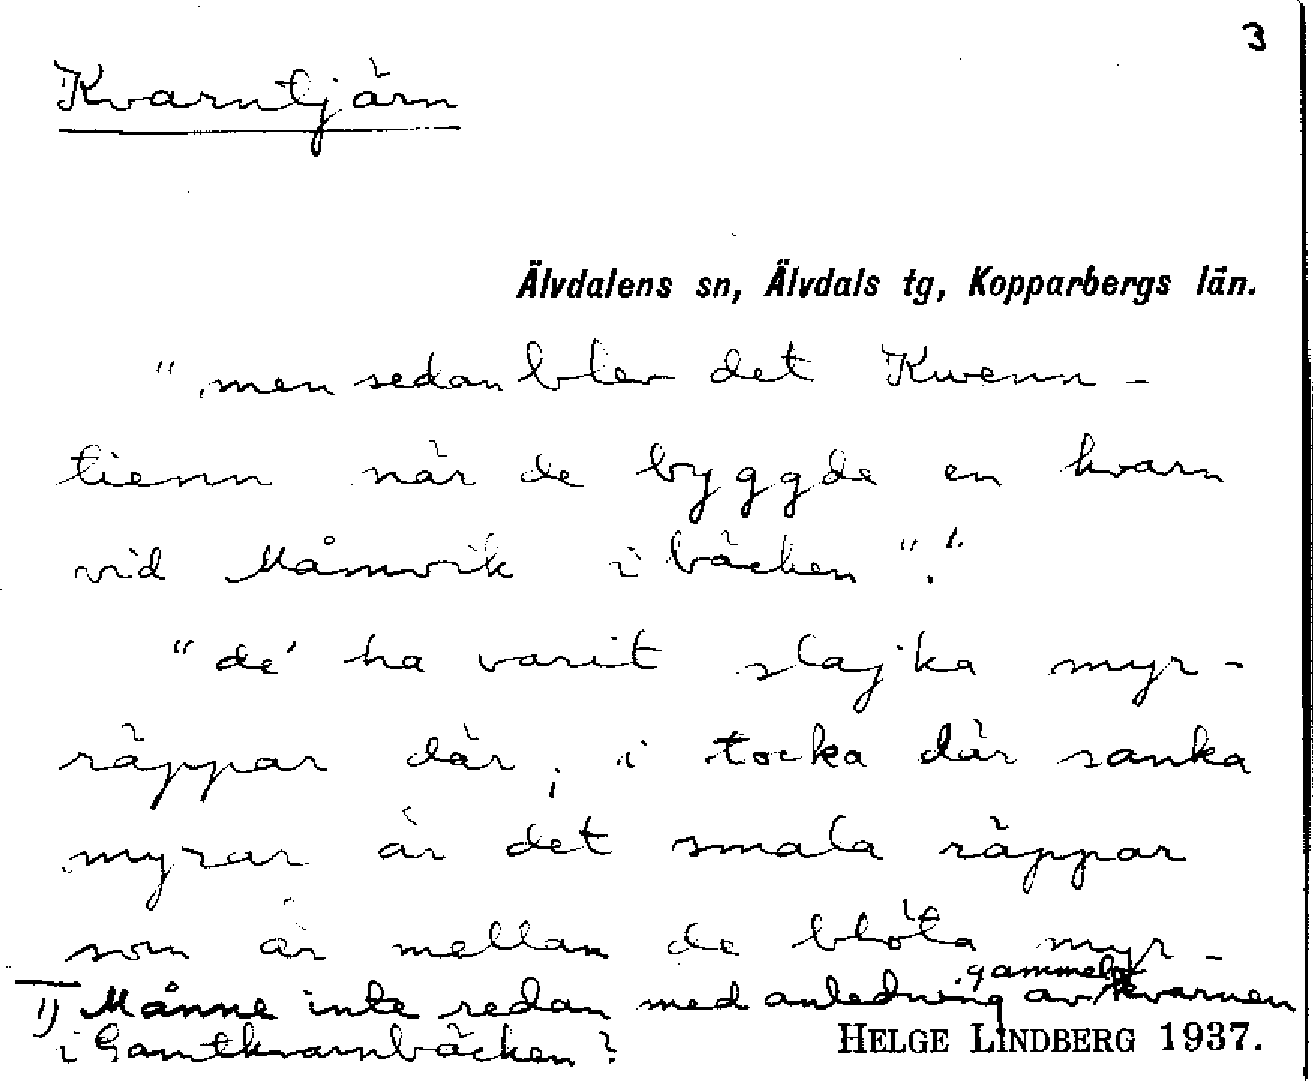 3
Kvarntjärn
Älvdalens sn, Älvdals tg, Kopparbergs län.
"men sedan blev det Kwenn-
tienn när de byggde en kvarn
vid Månvik i bäcken". 1.
"de' ha varit slajka myr-
räppar där; i tocka där sanka
myrar är det smala räppar
som är mellan de blöta myr-
1) Månne inte redan med anledning av gammelkvarnen
i Gamtkvarnbäcken?
HELGE LINDBERG 1937.